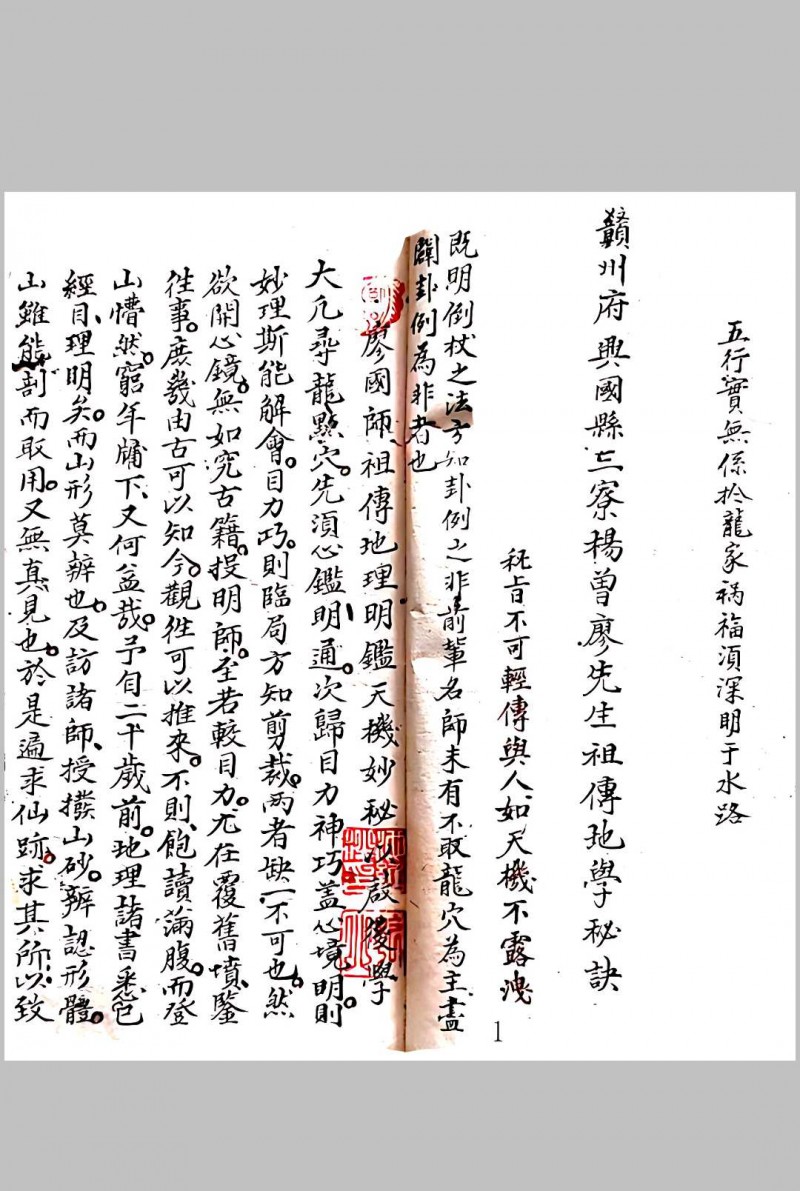 五行實無係於龍家禍福須深明于水路
贛州府興國縣三寮楊曾廖先生祖傳地學秘訣
秘旨不可輕傳與人如天機不露洩
既明倒杖之法方知卦例之非前輩名師未有不取龍穴為主盡
闢卦例為非者也
廖國師祖傳地理明鑑天機妙秘以啟後學
大凢尋龍點穴。先須心鑑明通。次歸目力神巧蓋心境明則
妙理斯能解會。目力巧。則臨局方知剪裁。兩者缺一不可也。然
欲開心鏡。無如究古籍。授明師。至若較目力。尤在覆舊墳。鑒
徃事。庻幾由古可以知今。觀徃可以推來。不則、飽讀滿腹。而登
山懵然。窮年牖下、又何益哉。予自二十歲前。地理諸書悉包
經目、理明矣。而山形莫辨也。及訪諸師、授撥山砂。辨認形體。
山雖能剖而取用。又無真見也。於是遍求仙跡。求其所以致
1